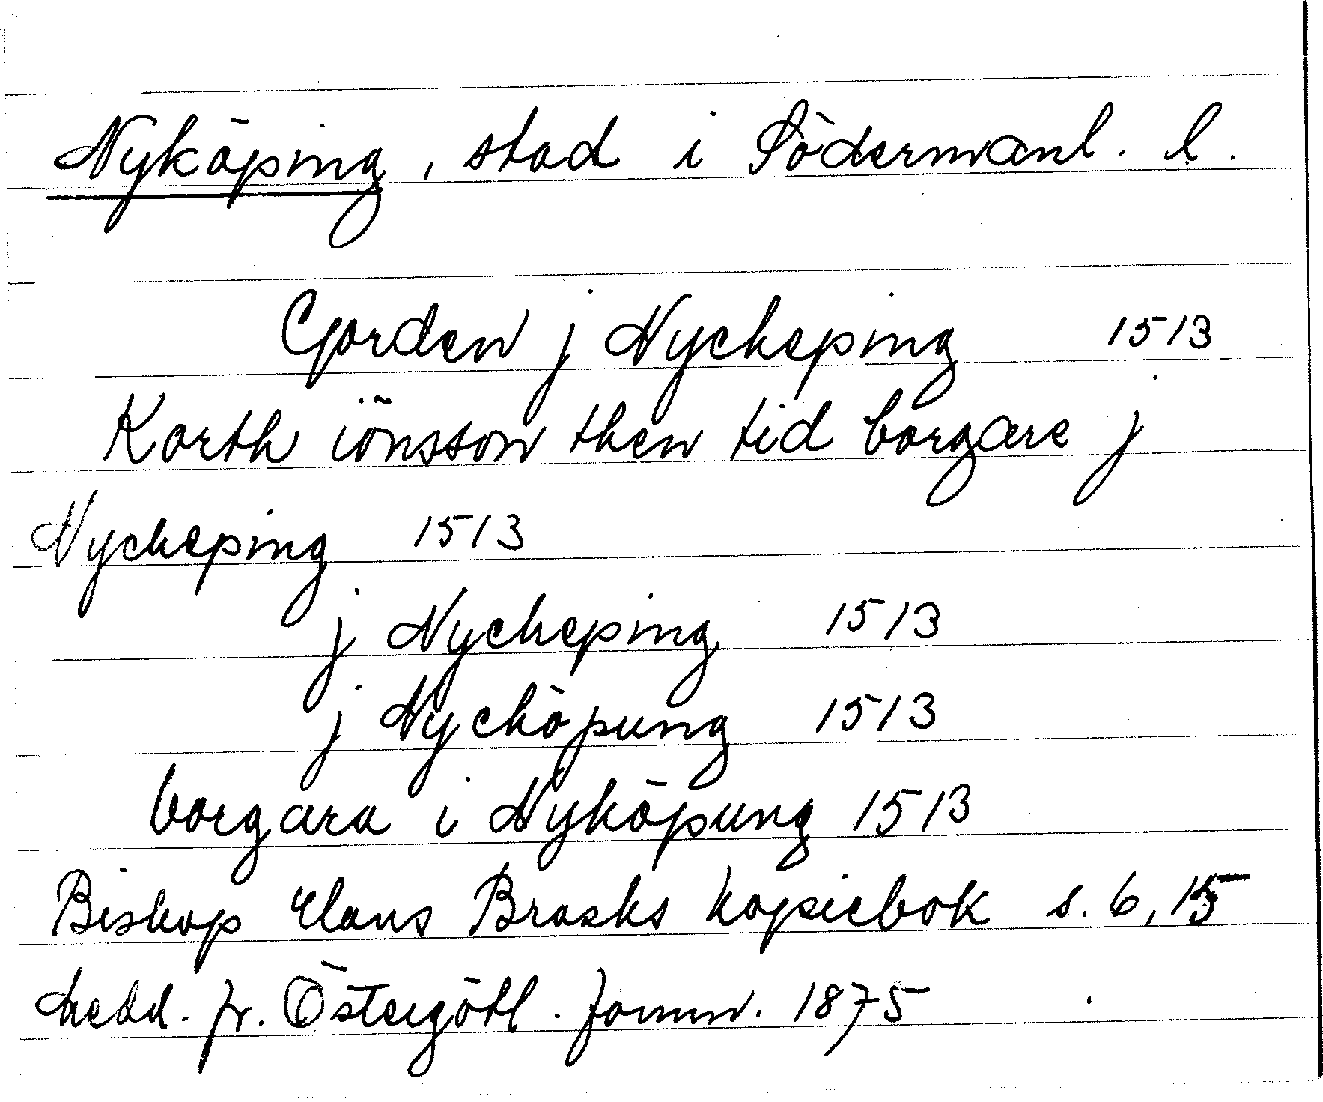 Nyköping, stad i Södermanl. l.
Gorden j Nyckeping 1513
Korth iönsson then tid borgare j
Nyckeping 1513
j Nyckeping 1513
j Nycköpung 1513
borgara i Nyköpung 1513
Biskop Hans Brasks kopiebok s. 6, 15
Medd. fr. Östergötl. fornm. 1875